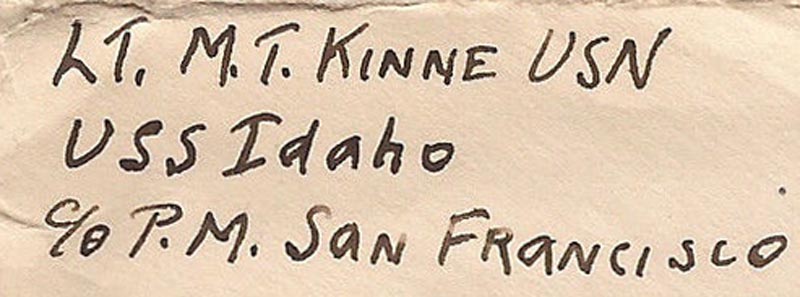 LT. M.T. KINNE USN
USS Idaho
c/o P.M. SAN FRANCISCO